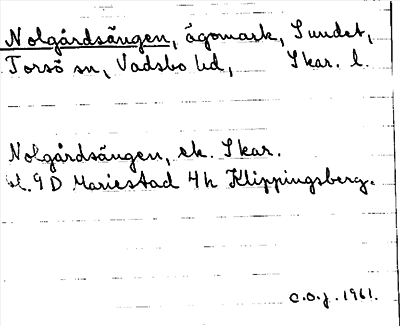 Nolgårdsängen, ägomark, Sundet,
Torsö sn, Vadsbo hd, Skar. l.
Nolgårdsängen, ek. Skar.
bl. 9 D Mariestad 4 h Klippingsberg.
C.O.J. 1961.